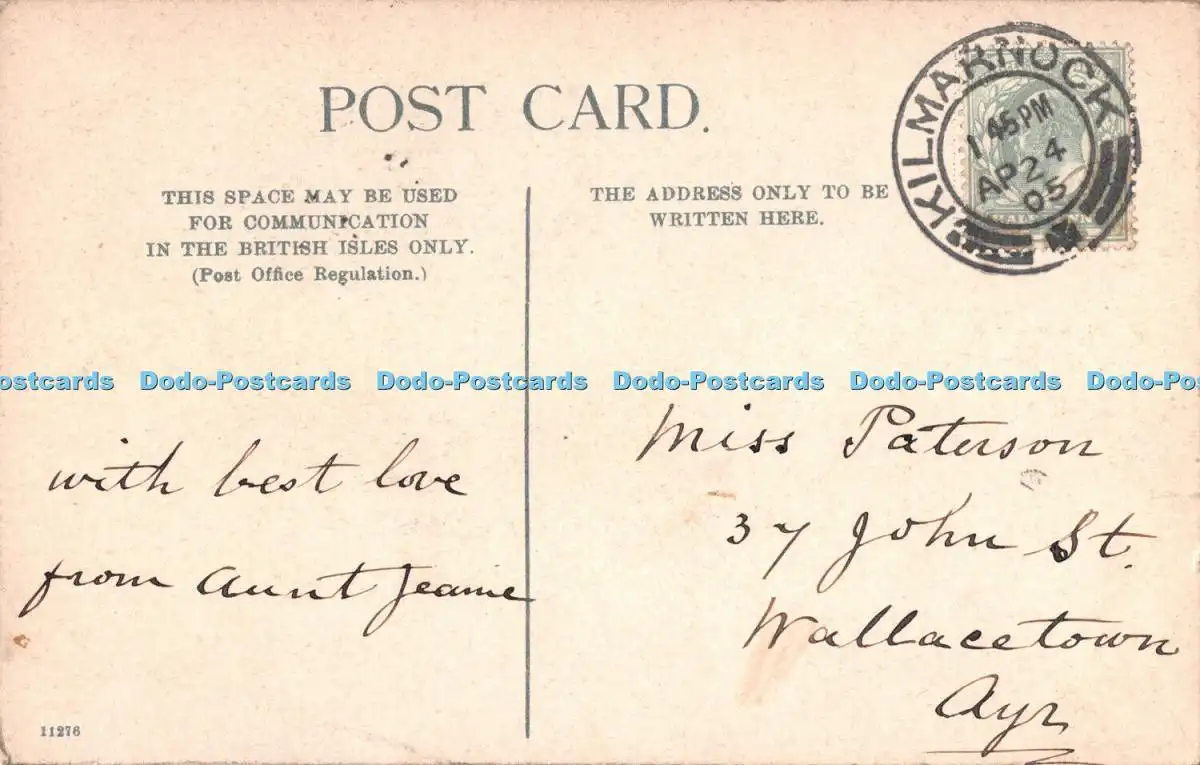 POST CARD.
THIS SPACE MAY BE USED
FOR COMMUNICATION
IN THE BRITISH ISLES ONLY.
(Post Office Regulation.)
THE ADDRESS ONLY TO BE
WRITTEN HERE.
KILMARNOCK
1 45 PM
AP 24
05
ostcards Dodo-Postcards Dodo-Postcards Dodo-Postcards Dodo-Postcards Dodo-Po
with best love
from Aunt Jeanie
Miss Paterson
37 John St.
Wallacetown
Ayr
11276